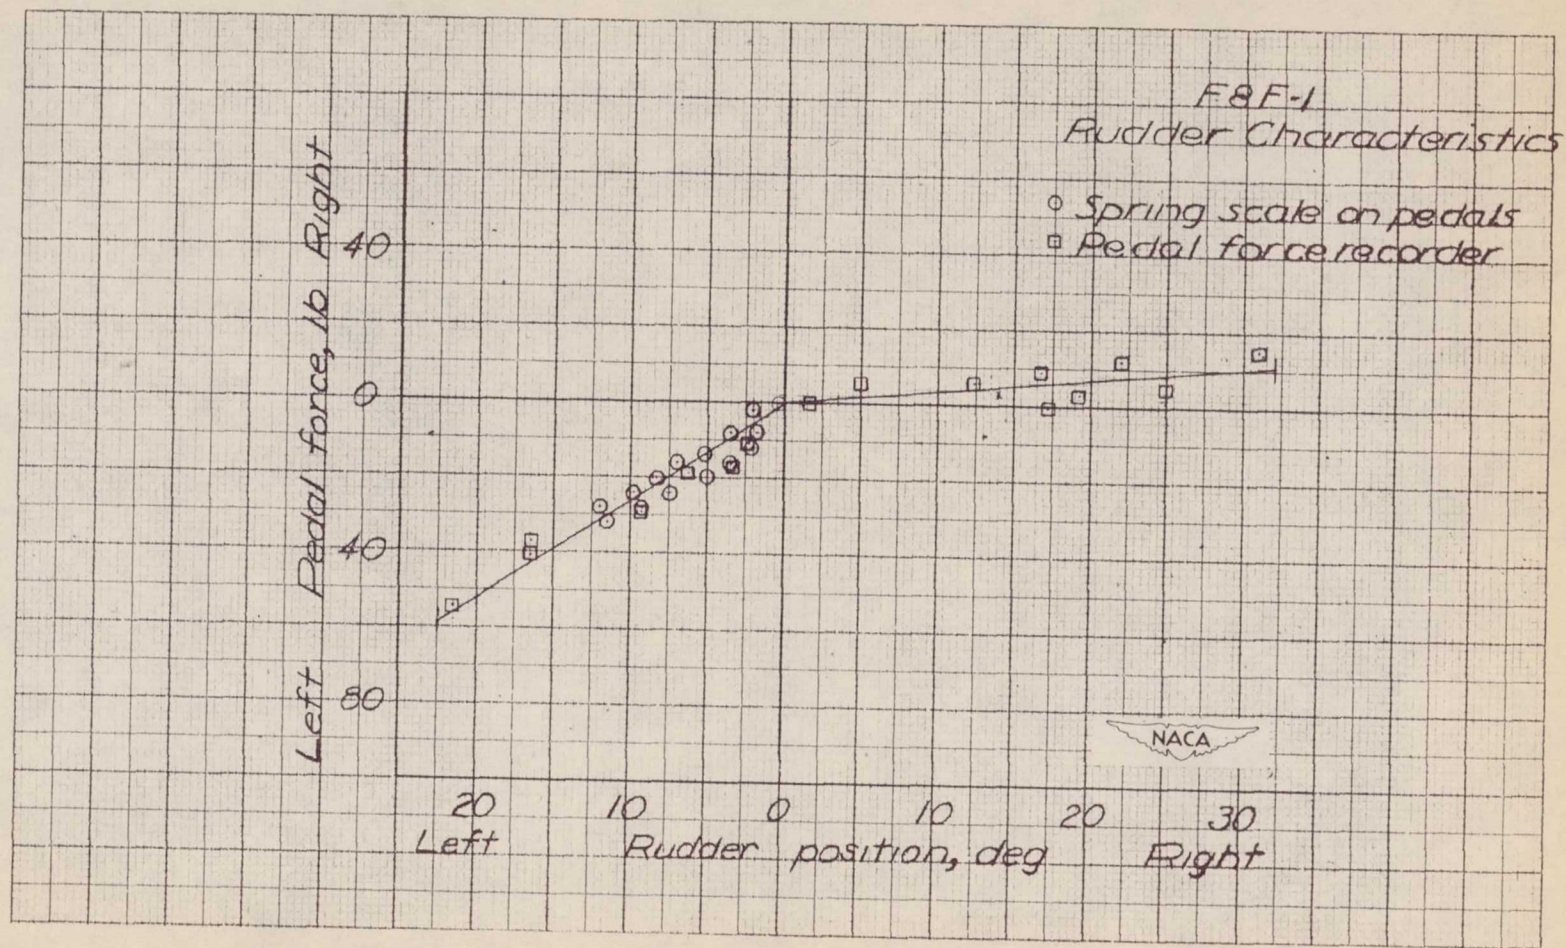 F8F-1
Rudder Characteristics
Spring scale on pedals
Pedal force recorder
Left Pedal force, lb Right
40
0
40
80
NACA
20 10 0 10 20 30
Left Rudder position, deg Right